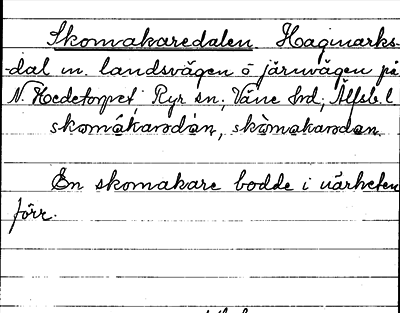 Skomakaredalen. Hagmarks-
dal m. landsvägen o järnvägen på
N. Hedetorpet, Ryr sn, Väne hd, Älfsb. l
skomákaredàn, skòmakaredan
En skomakare bodde i närheten
förr.